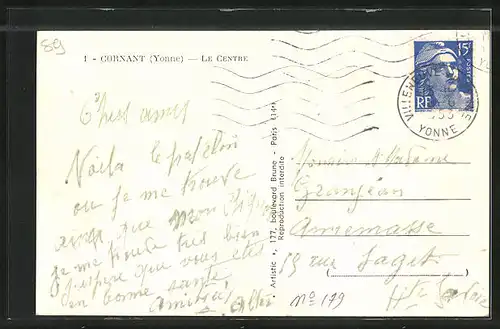 89
1 - CORNANT (Yonne) — LE CENTRE
15F
POSTES
RF
VILLEN
YONNE
Chers amis
Voila le patelin
ou je me trouve
ainsi que mon
je me trouve très bien
J'espère que vous etes
en bonne santé
Amitiés,
« Artistic », 177, boulevard Brune - Paris (14e)
Reproduction interdite
Monsieur et Madame
Granjean
Annemasse
59 rue Faget
Hte Savoie
No 179